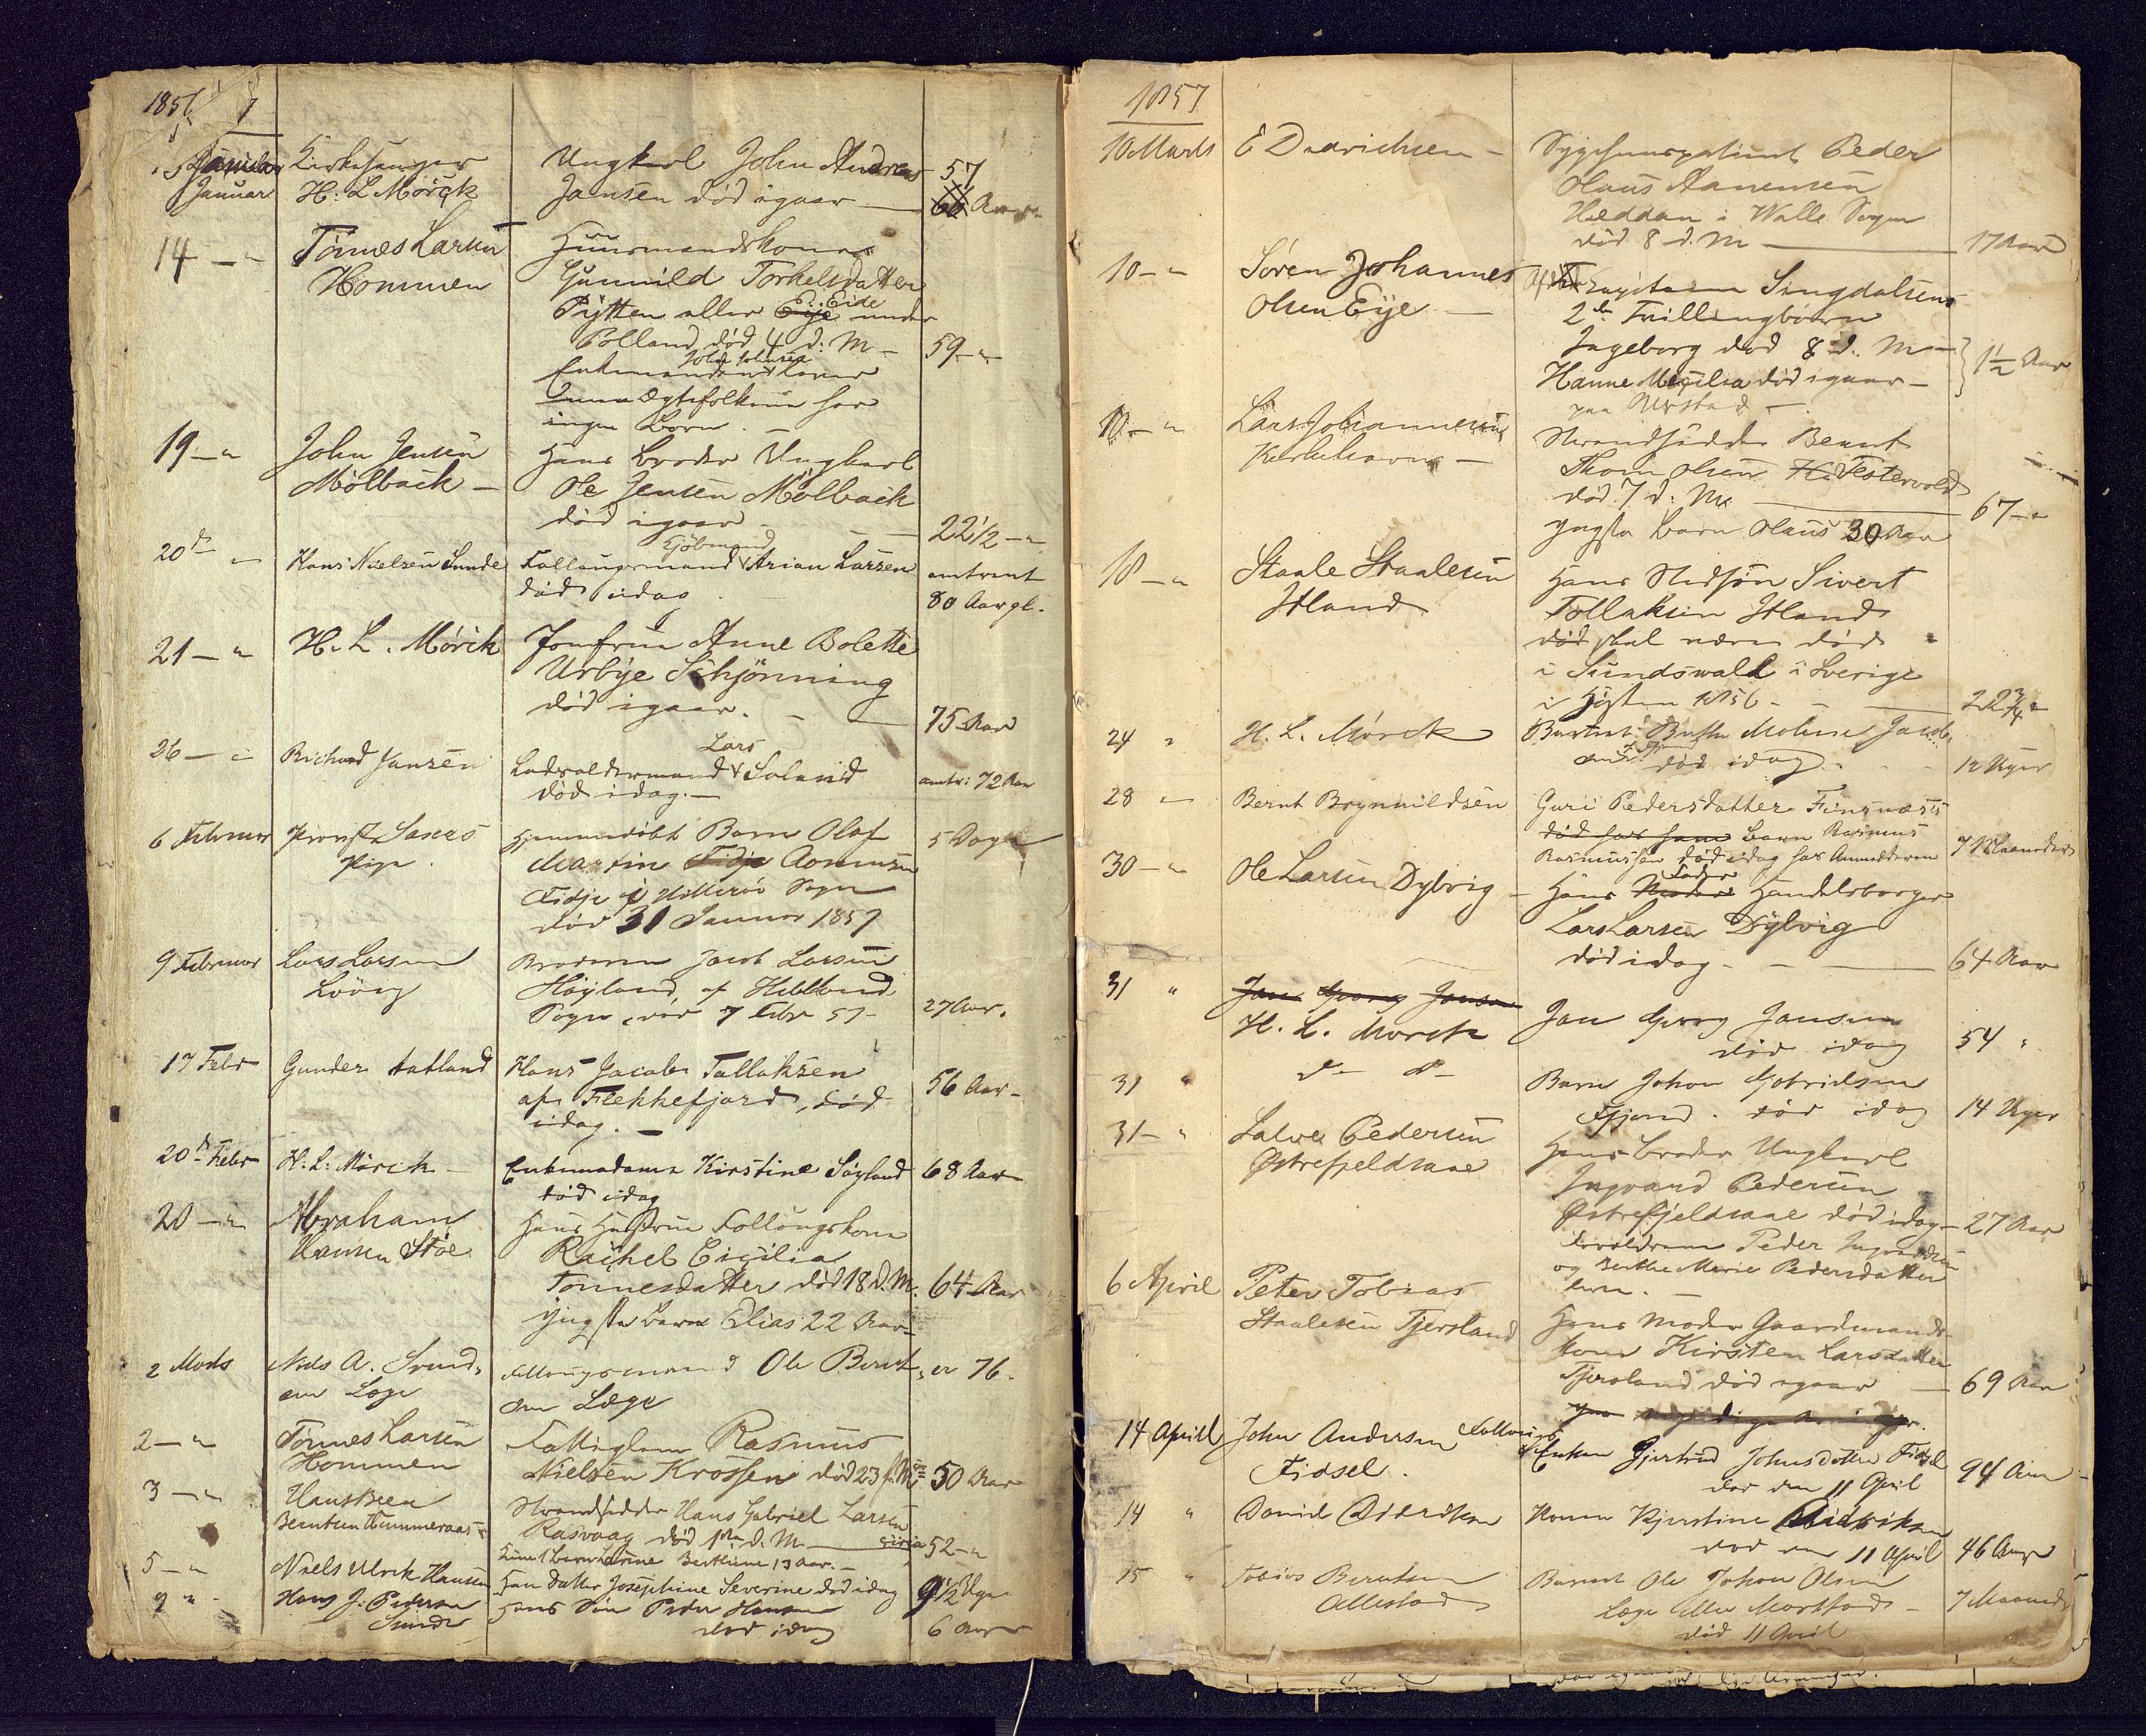 1857
Januar Kirkesanger
H. L. Mørck
Ungkarl John Andreas
Jansen død igaar
57
Aar
14 — " Tönnes Larsen
Hommen
Huusmandskone
Gunnild Torkelsdatter
Pytten eller Eide under
Polland død 4 d: M —
59 — "
Enkemanden lever
Ægtefolkene har
ingen Børn. —
19 — " John Jensen
Mölback —
Hans Broder Ungkarl
Ole Jensen Mölback
død igaar —
22 1/2 — "
20de " Hans Nielsen Sunde
Kjöbmand
Fallougsmand Arian Larsen
død idag
omtrent
80 Aar gl.
21 — " H. L. Mörck
Jomfrue Anne Bolette
Urbye Schjönning
død igaar. —
75 Aar
26 — " Richard Jansen
Lars
Lodsoldermand Soland
død idag. —
omtr: 72 Aar
6 Februar
Pige
Hjemmedøbt Barn Olaf
Martin Aanensen
Fidje i Hitterö Sogn
død 31 Januar 1857
5 Dage
9 Februar Lars Larsen
Broderen Jacob Larsen
Höyland af
Sogn, død 7 Febr 57
27 Aar.
17 Febr Gunder Aatland
Hans Jacob Tallaksen
af Flekkefjord, död
idag. —
56 Aar —
20de Febr H: L: Mörck —
Enkemadame Kirstine Söyland
död idag
68 Aar
20 — " Abraham
Hansen Stöe
Hans Hustrue Follougskone
Rachel Cicilia
Tönnesdatter död 18 d. M.
64 Aar
yngste Barn Elias 22 Aar
2 Marts Niels A. Svend-
sen Læge
Follougsmand Ole Bernt-
sen Læge
er 76.
2 — " Tönnes Larsen
Hommen
Fattiglem Rasmus
Nielsen Krossen död 23 f. M.
50 Aar
3 — " Hans Been
Berntsen Hummeraas
Strandsidder Hans Gabriel Larsen
Rasvaag död 1ste d. M —
circa 52 — "
Berthine 13 Aar. —
5 — " Niels Ulrik Hansen
Hans Datter Josephine Severine död idag
9 1/2 Uge
9 " Hans J. Pedersen
Sunde
Hans Søn Peder Hansen
død idag
6 Aar
1857
10 Marts E Dedrichsen —
Sygehuuspatient Peder
Olaus Aanensen
Hæddan i Walle Sogn
død 8 d. M —
17 Aar
10 — " Sören Johannes
Olsen Eye —
Singdalsens
2de Tvillingbörn
Ingeborg död 8 d. M —
Hanne Mecilia död igaar —
1 1/2 Aar
10 — " Lars Johannesen
Kirkehavn —
Strandsidder Bernt
Thom Olsen Festervold
död 7 d. M.
67 — "
yngste Barn Olaus 30 Aar
10 — " Staale Staalesen
Itland
Hans Stedsön Sivert
Tollaksen Itland
skal være död
i Sundswald i Sverige
i Hösten 1856 —
22 3/4 "
24 " H. L. Mörck
Barnet Malene Jacob-
sen
død idag. —
12 Uger
28 — Bernt Brynnildsen
Guri Pedersdatter Finsnæss
Barn Rasmus
Rasmussen död idag hos Anmelderen
7 Maaneder
30 — " Ole Larsen Dybvig —
Fader
Hans Handelsborger
Lars Larsen Dybvig
död idag. —
64 Aar
31 " Jan Georg Jansen
H. L. Mörck
Jan Georg Jansen
död idag
54 "
31 " d — d —
Barn Johan Gabrielsen
Fjord. død idag
14 Uger
31 — " Salve Pedersen
Østrefjeldsaae
Hans Broder Ungkarl
Ingvard Pedersen
Østrefjeldsaae död idag —
27 Aar
Forældrene Peder Ingvardsen
og Berthe Marie Pedersdatter
lever. —
6 April Peter Tobias
Staalesen Tjersland
Hans Moder Gaardmands-
kone Kirsten Larsdatter
Tjersland död igaar —
69 Aar
14 April John Andersen
Fidsel.
Follougs
Enken Gjertrud Johnsdatter Fidsel
død den 11 April
94 Aar
14 " Daniel Didriksen
Konen Kjerstine Didriksen
død den 11 April
46 Aar
15 " Tobias Berntsen
Allestad
Barnet Ole Johan Olsen
Læge eller
død 11 April
7 Maaneder